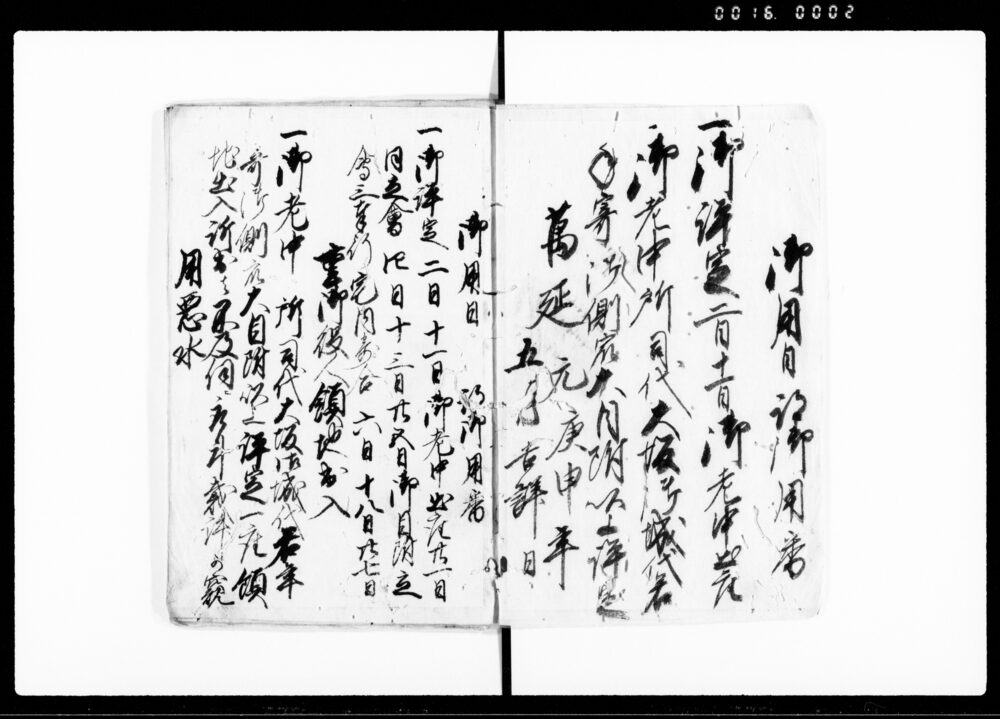 0016. 0002
御用日 御用番
一御評定二日十一日御老中出座
御老中所司代大坂御城代若
年寄御側衆大目附以上評定
萬延元庚申年
五月吉祥日
御用日 御用番
一御評定二日十一日御老中出座廿一日
同立會四日十三日廿五日御目附立
會三奉行宅内寄合六日十八日廿七日
重御役人領地出入
一御老中 所司代大坂御城代若年
寄御側衆大目附以上評定一座領
地出入訴出候
用悪水